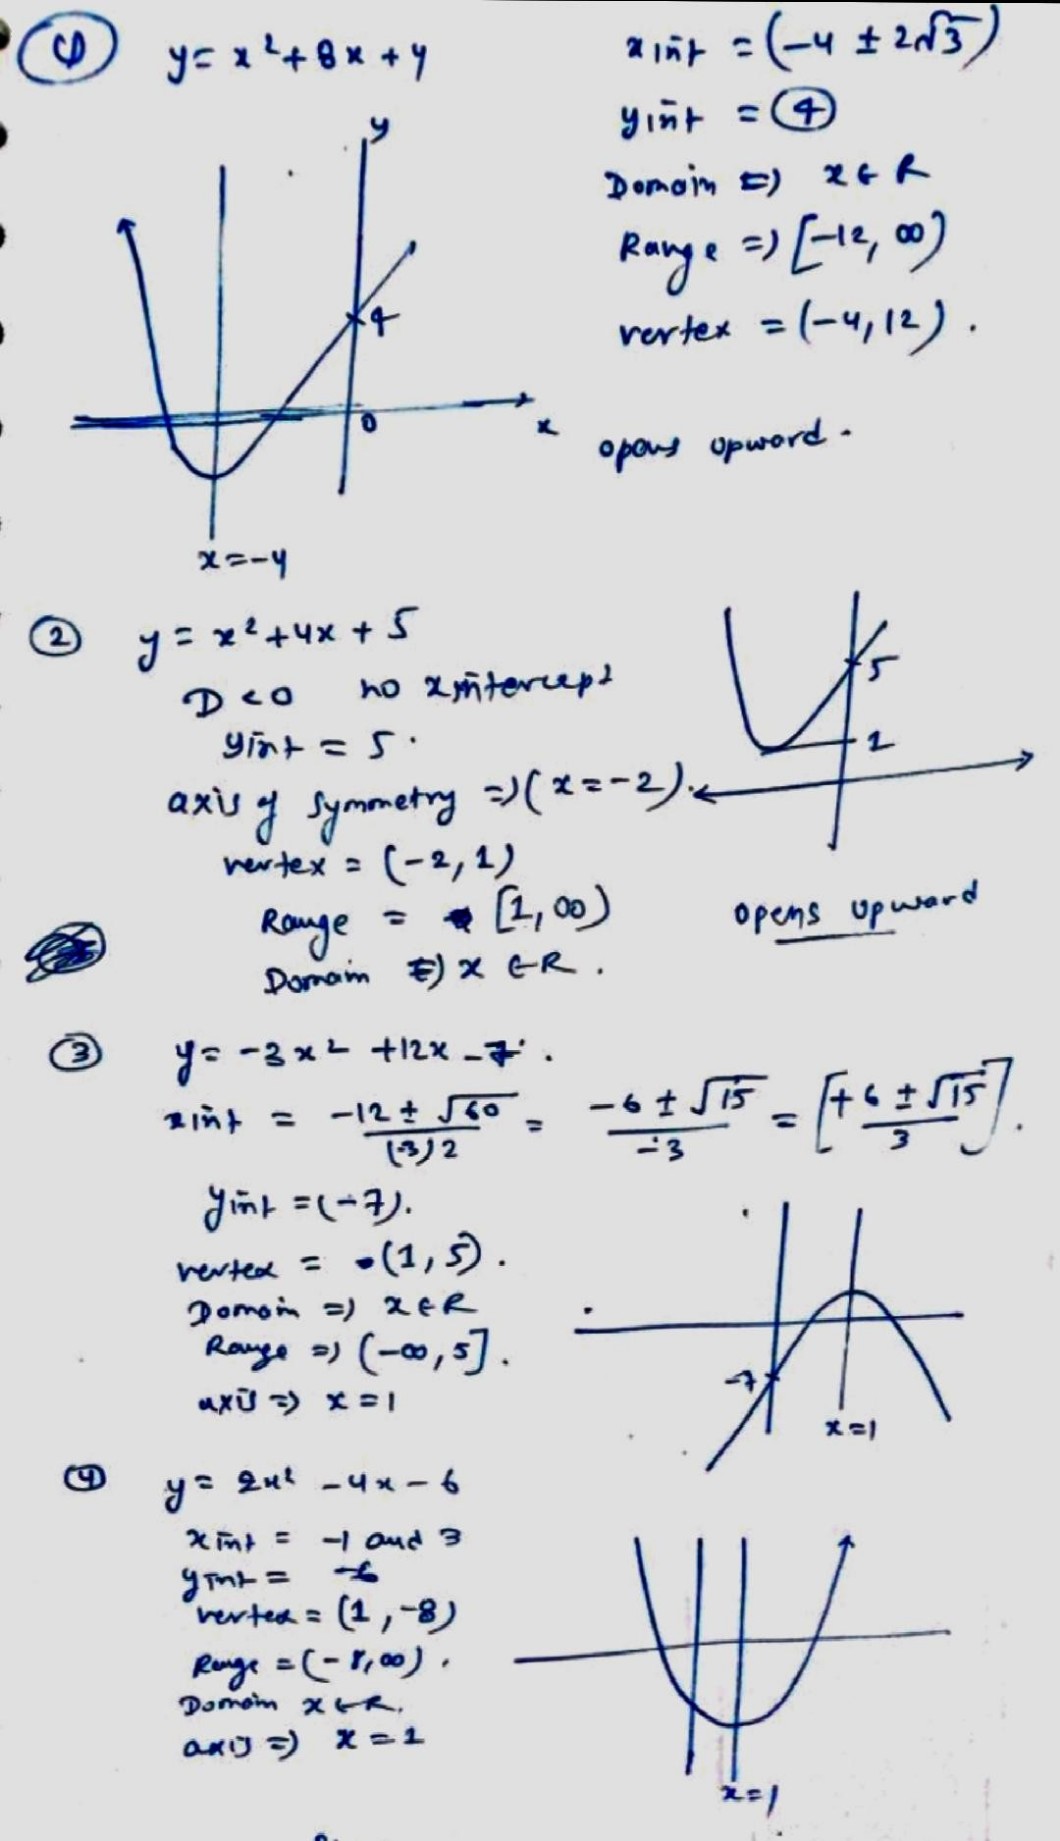 ① y = x² + 8x + 4
x int = (-4 ± 2√3)
y int = ④
Domain ⇒ x ∈ R
Range ⇒ [-12, ∞)
vertex = (-4, 12).
opens upward.
y
4
0
x
x = -4
② y = x² + 4x + 5
D < 0 no x intercept
y int = 5.
axis of symmetry ⇒ (x = -2).
vertex = (-2, 1)
Range = [1, ∞)
Domain ⇒ x ∈ R.
5
1
opens upward
③ y = -3x² + 12x - 7.
x int = (-12 ± √60)/((-3)2) = (-6 ± √15)/(-3) = [(+6 ± √15)/3].
y int = (-7).
vertex = (1, 5).
Domain ⇒ x ∈ R
Range ⇒ (-∞, 5].
axis ⇒ x = 1
-7
x = 1
④ y = 2x² - 4x - 6
x int = -1 and 3
y int = -6
vertex = (1, -8)
Range = (-8, ∞).
Domain x ∈ R.
axis ⇒ x = 1
x = 1